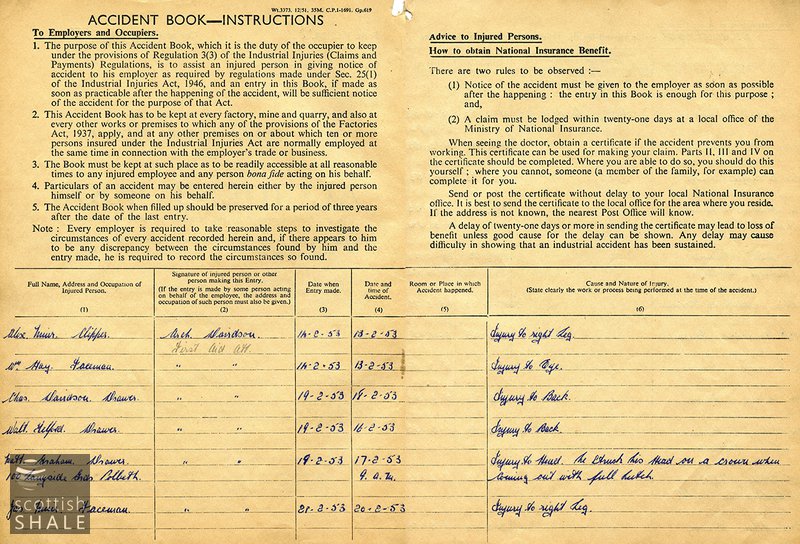 Wt.3373. 12/51, 35M, C.P.I-1691. Gp.619
ACCIDENT BOOK—INSTRUCTIONS
To Employers and Occupiers.
1. The purpose of this Accident Book, which it is the duty of the occupier to keep
under the provisions of Regulation 3(3) of the Industrial Injuries (Claims and
Payments) Regulations, is to assist an injured person in giving notice of
accident to his employer as required by regulations made under Sec. 25(1)
of the Industrial Injuries Act, 1946, and an entry in this Book, if made as
soon as practicable after the happening of the accident, will be sufficient notice
of the accident for the purpose of that Act.
2. This Accident Book has to be kept at every factory, mine and quarry, and also at
every other works or premises to which any of the provisions of the Factories
Act, 1937, apply, and at any other premises on or about which ten or more
persons insured under the Industrial Injuries Act are normally employed at
the same time in connection with the employer's trade or business.
3. The Book must be kept at such place as to be readily accessible at all reasonable
times to any injured employee and any person bona fide acting on his behalf.
4. Particulars of an accident may be entered herein either by the injured person
himself or by someone on his behalf.
5. The Accident Book when filled up should be preserved for a period of three years
after the date of the last entry.
Note : Every employer is required to take reasonable steps to investigate the
circumstances of every accident recorded herein and, if there appears to him
to be any discrepancy between the circumstances found by him and the
entry made, he is required to record the circumstances so found.
Advice to Injured Persons.
How to obtain National Insurance Benefit.
There are two rules to be observed :—
(1) Notice of the accident must be given to the employer as soon as possible
after the happening : the entry in this Book is enough for this purpose ;
and,
(2) A claim must be lodged within twenty-one days at a local office of the
Ministry of National Insurance.
When seeing the doctor, obtain a certificate if the accident prevents you from
working. This certificate can be used for making your claim. Parts II, III and IV on
the certificate should be completed. Where you are able to do so, you should do this
yourself ; where you cannot, someone (a member of the family, for example) can
complete it for you.
Send or post the certificate without delay to your local National Insurance
office. It is best to send the certificate to the local office for the area where you reside.
If the address is not known, the nearest Post Office will know.
A delay of twenty-one days or more in sending the certificate may lead to loss of
benefit unless good cause for the delay can be shown. Any delay may cause
difficulty in showing that an industrial accident has been sustained.
Full Name, Address and Occupation of
Injured Person.
(1)
Signature of injured person or other
person making this Entry.
(If the entry is made by some person acting
on behalf of the employee, the address and
occupation of such person must also be given.)
(2)
Date when
Entry made.
(3)
Date and
time of
Accident.
(4)
Room or Place in which
Accident happened.
(5)
Cause and Nature of Injury.
(State clearly the work or process being performed at the time of the accident.)
(6)
Alex. Muir. Clipper. Arch. Davidson. 14-2-53 13-2-53 Injury to right Leg
First Aid Att.
Wm Hay. Faceman. " " 14-2-53 13-2-53 Injury to Eye.
Chas. Davidson. Drawer. " " 19-2-53 18-2-53 Injury to Back.
Walt. Telford. Drawer. " " 19-2-53 16-2-53 Injury to Back.
Graham. Drawer. " " 19-2-53 17-2-53 Injury to Head. He Struck his Head on a crown when
100 Langside Polbeth. 9. a.m. coming out with full hutch.
Faceman. " " 21-2-53 20-2-53 Injury to right Leg.
Scottish
SHALE